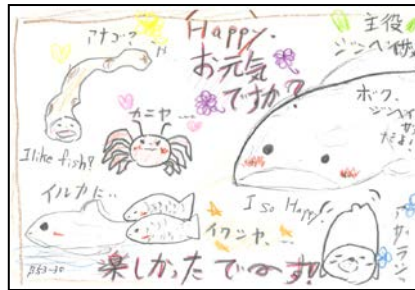 Happy.
お元気
ですか?
主役
ジンベイザメ
アナゴ?
カニヤ...
ボク、
ジンベイ
ザメ
だよ!
I like fish?
イルカに...
I So Happy!
イワシヤ、...
アザラシ、
楽しかったでーす!